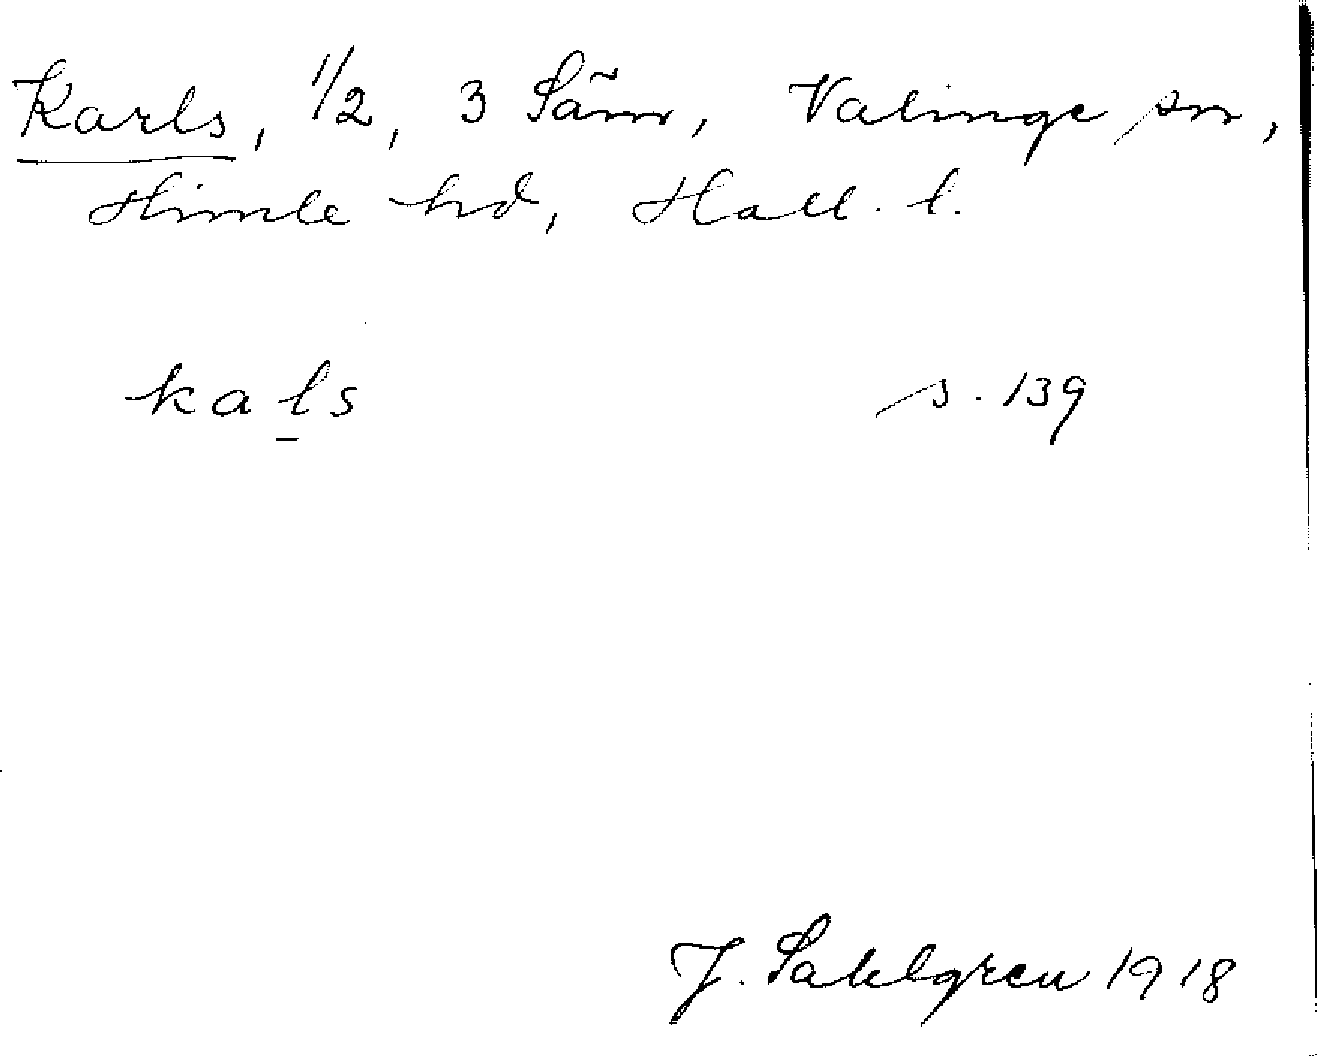 Karls, 1/2, 3 Säm, Valinge sn,
Himle hd, Hall. l.
kals s. 139
J. Sahlgren 1918